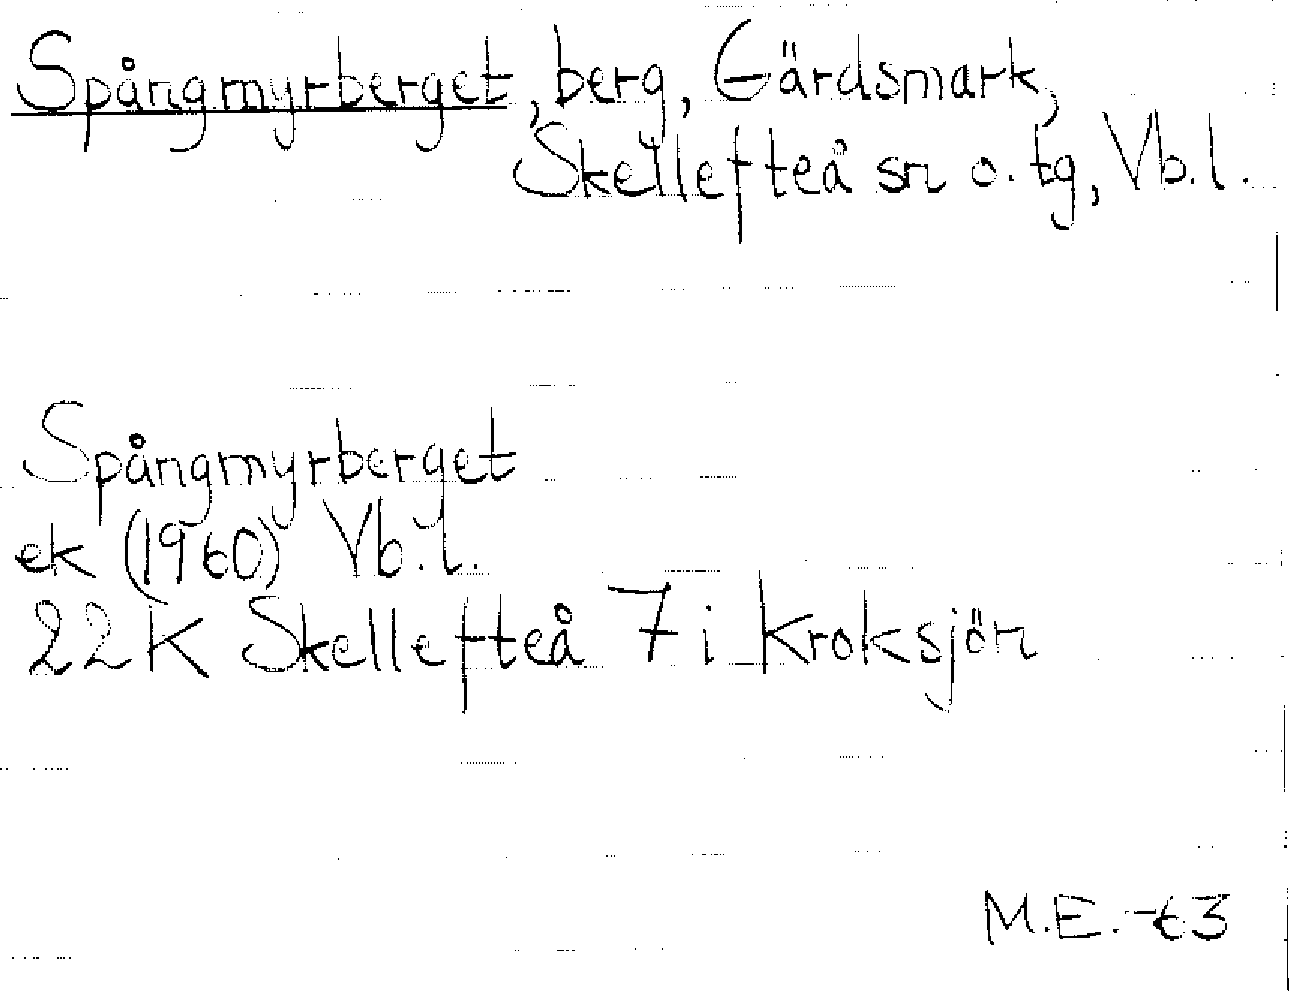 Spångmyrberget, berg, Gärdsmark,
Skellefteå sn o. tg, Vb.l.
Spångmyrberget
ek (1960) Vb.l.
22K Skellefteå 7i Kroksjön
M.E.-63